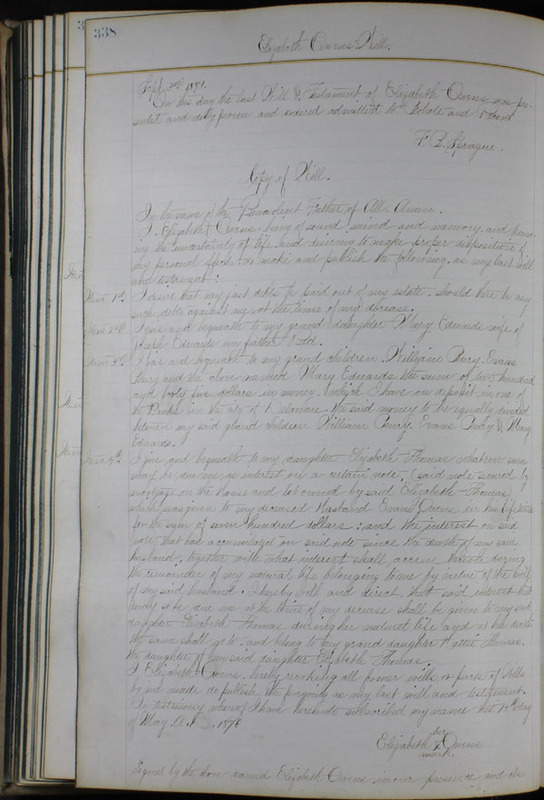 338
Elizabeth Owens Will.
On this day the last Will & Testament of Elizabeth Owens was pre-
sented and duly proven and ordered admitted to Probate and Record
F. D. Sprague.
Copy of Will.
In the name of the Benevolent Father of All. Amen.
I. Elizabeth Owens being of sound mind and memory and know-
ing the uncertainty of life and desiring to make proper disposition of
my personal goods do make and publish the following as my last will
and testament:
Item 1st I desire that my just debts be paid out of my estate. Should there be any
such debts against my at the time of my decease.
Item 2nd I give and bequeath to my grand daughter Mary Edwards wife of
Edwards my feather Bed.
Item 3rd I give and bequeath to my grand children William Evans
and the above named Mary Edwards the sum of two hundred
and forty five dollars in money. which I have on deposit in one of
the Banks in the city of the said money to be equally divided
between my said grand children William Evans & Mary
Edwards.
Item 4th I give and bequeath to my daughter Elizabeth Thomas whatever sum
may be due me as interest on a certain note, (said note secured by
mortgage on the House and lot owned by said Elizabeth Thomas)
which was given to my deceased Husband Evan Owens in his life time
for the sum of seven hundred dollars: and the interest on said
note that had accumulated on said note since the death of my said
husband, together with what interest shall accrue during
the remainder of my natural life belonging to me by virtue of the will
of my said husband. I hereby will and direct that said interest that
may be due me at the time of my decease shall be given to my said
daughter Elizabeth Thomas during her natural life and at her death
the same shall go to and belong to my grand daughter Hattie Thomas.
the daughter of my said daughter Elizabeth Thomas.
I Elizabeth Owens hereby revoking all former wills or parts of Wills
by me made do publish the foregoing as my last will and testament.
In testimony whereof I have hereunto subscribed my name this May
of May A.D. 1878
her
Elizabeth X Owens
mark
Signed by the above named Elizabeth Owens in our presence and also